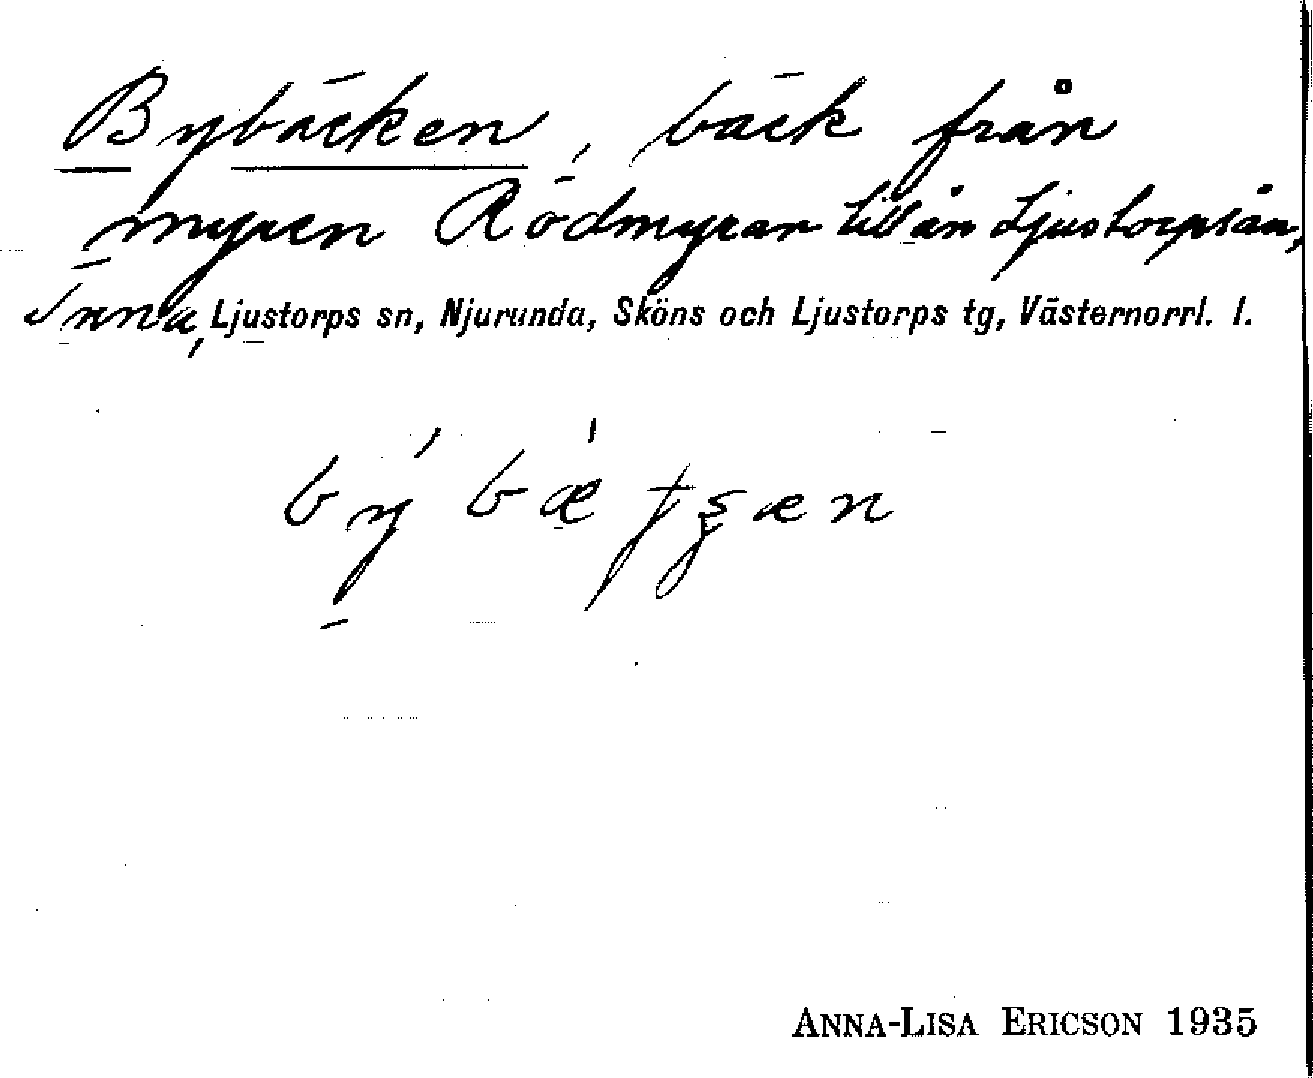 Bybäcken, bäck från
myren Rödmyran till ån Ljustorpsån,
Ljustorps sn, Njurunda, Sköns och Ljustorps tg, Västernorrl. l.
ANNA-LISA ERICSON 1935